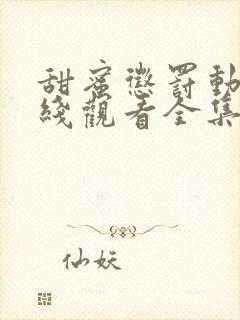 甜蜜懲罰動
綫觀看全集
仙妖